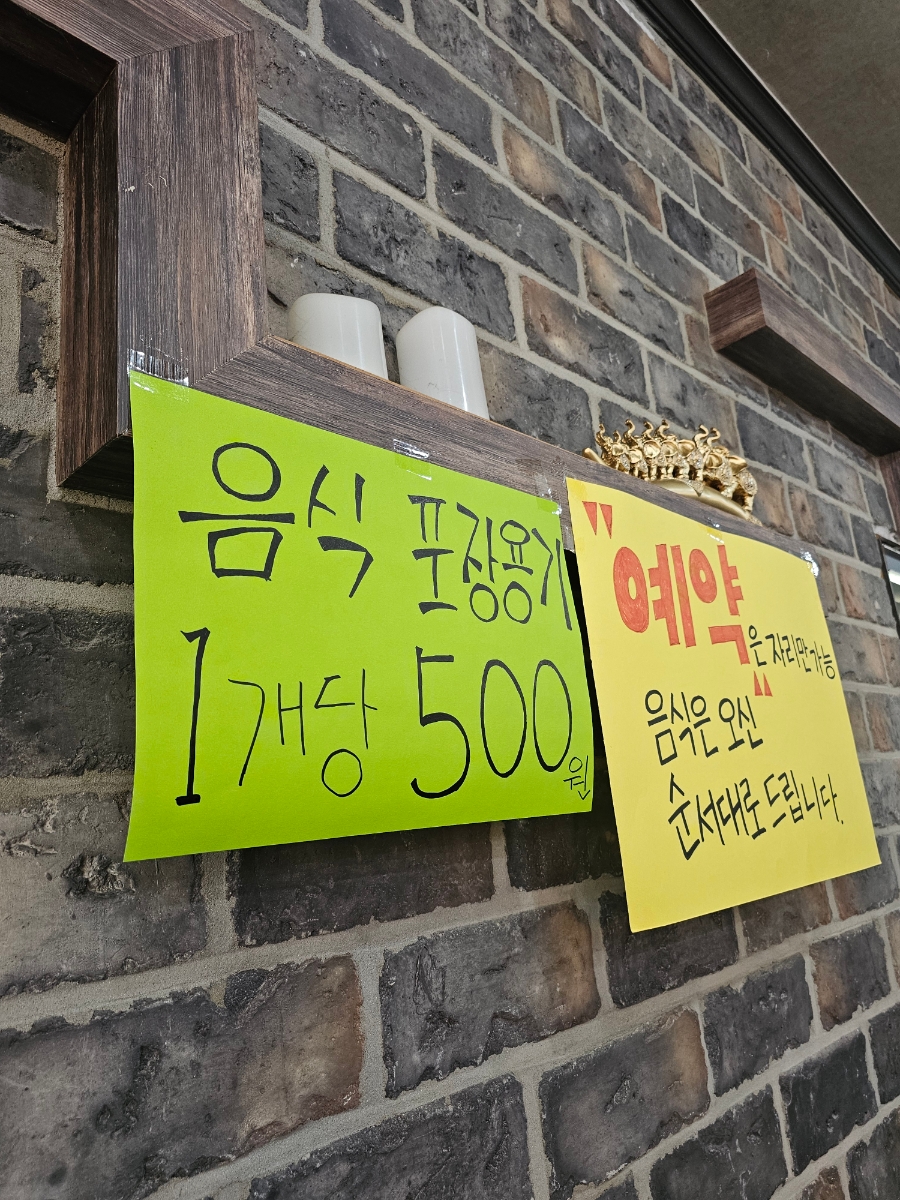 음식 포장용기
1개당 500원
"예약"은 자리만 가능
음식은 오신
순서대로 드립니다.